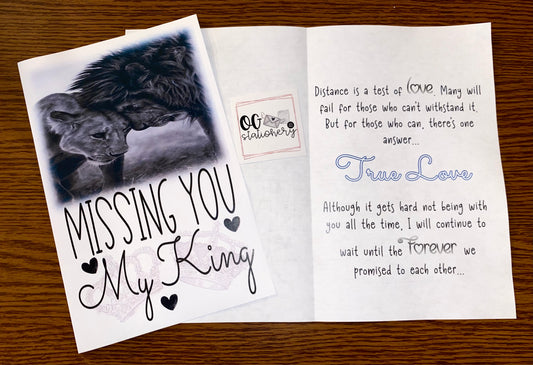 MISSING YOU
My King
OG
stationery
Distance is a test of love. Many will
fail for those who can't withstand it.
But for those who can, there's one
answer...
True Love
Although it gets hard not being with
you all the time, I will continue to
wait until the Forever we
promised to each other...